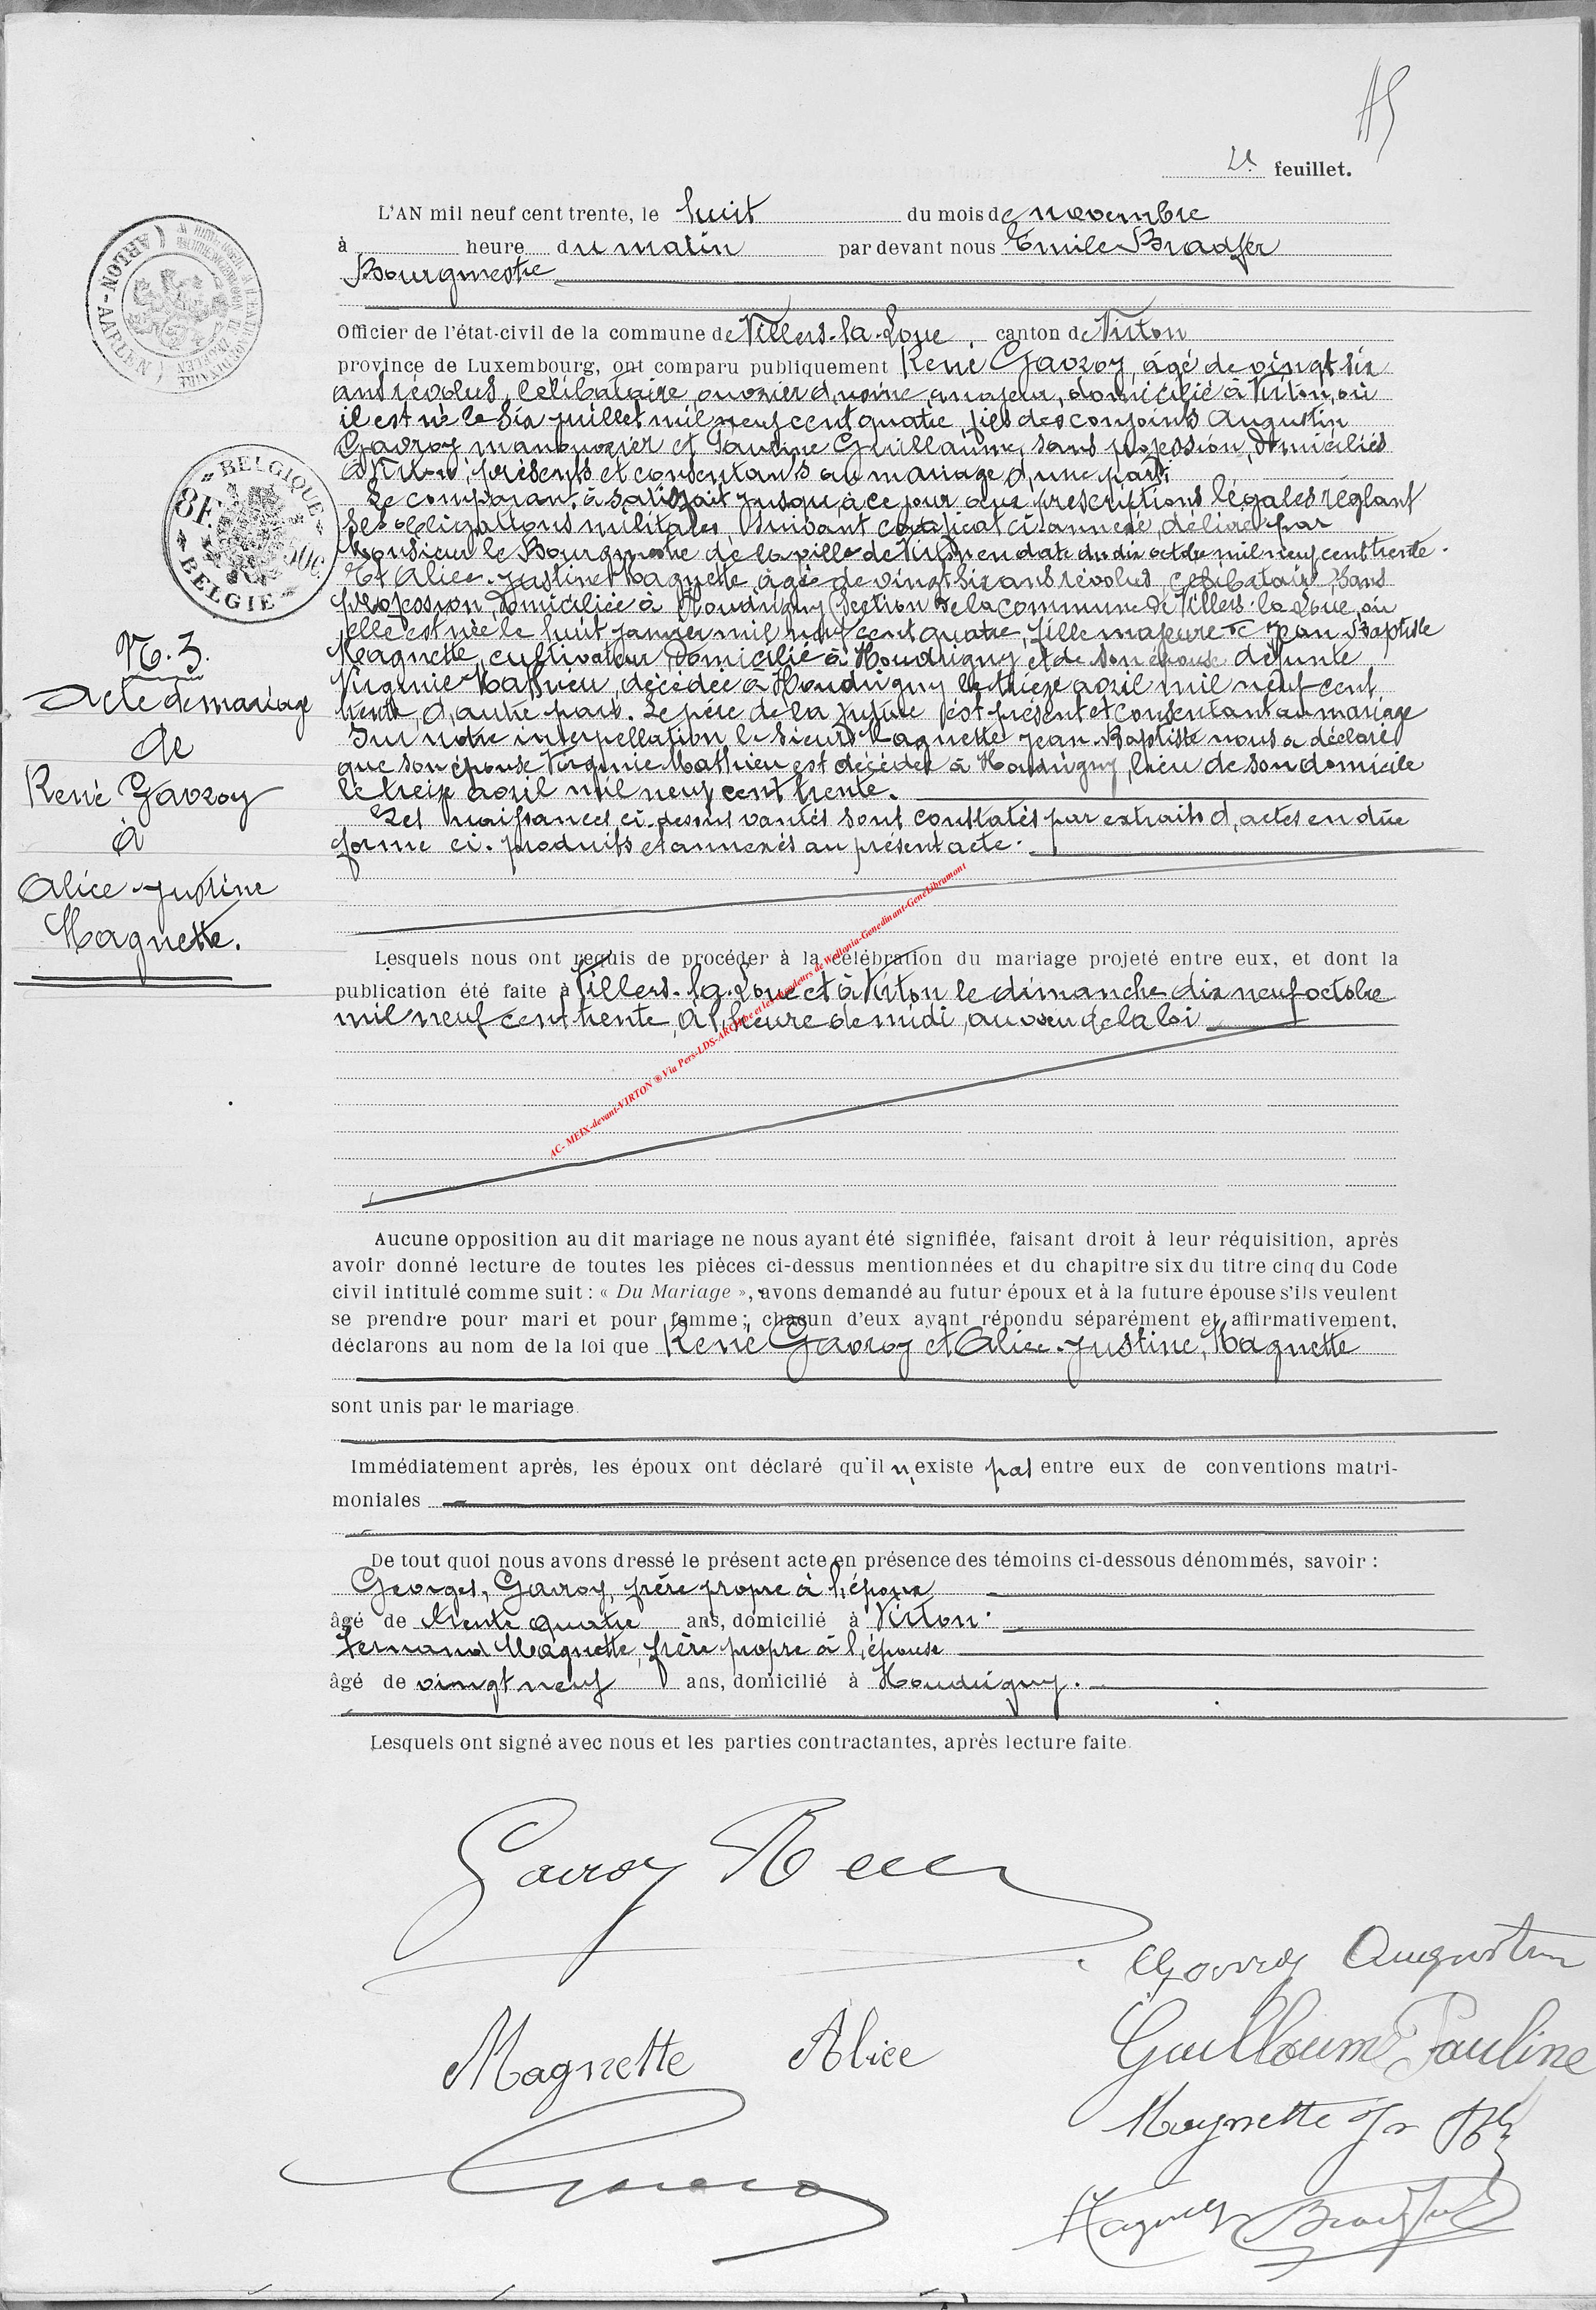 2e feuillet.
L'AN mil neuf cent trente, le huit du mois de novembre
à heure du matin par devant nous Emile Bradfer
Bourgmestre
Officier de l'état-civil de la commune de Villers-la-Loue, canton de Virton
province de Luxembourg, ont comparu publiquement René Gavroy, âgé de vingt six
ans révolus, célibataire, ouvrier d'usine, majeur, domicilié à Virton, où
il est né le six juillet mil neuf cent quatre, fils des conjoints Augustin
Gavroy manouvrier et Pauline Guillaume, sans profession, domiciliés
à Virton, présents et consentants au mariage d'une part.
Le comparant à satisfait jusqu'à ce jour aux prescriptions légales réglant
ses obligations militaires, suivant certificat ci-annexé, délivré par
Monsieur le Bourgmestre de la ville de Virton en date du dix octobre mil neuf cent trente.
Et Alice-Justine Magnette âgée de vingt six ans révolus, célibataire, sans
profession, domiciliée à Houdrigny section de la commune de Villers-la-Loue, où
elle est née le huit janvier mil neuf cent quatre, fille majeure de Jean Baptiste
Magnette, cultivateur, domicilié à Houdrigny et de son épouse défunte
Virginie Mathieu, décédée à Houdrigny le treize avril mil neuf cent
trente, d'autre part. Le père de la future est présent et consentant au mariage
Sur notre interpellation le sieur Magnette Jean-Baptiste nous a déclaré
que son épouse Virginie Mathieu est décédée à Houdrigny, lieu de son domicile
le treize avril mil neuf cent trente.
Les naissances ci-dessus vantés sont constatés par extraits d'actes en dûe
forme ci-produits et annexés au présent acte.
N. 3.
Acte de mariage
de
René Gavroy
à
Alice-Justine
Magnette.
Lesquels nous ont requis de procéder à la célébration du mariage projeté entre eux, et dont la
publication été faite à Villers-la-Loue et à Virton, le dimanche dix neuf octobre
mil neuf cent trente, à l'heure de midi, au vœu de la loi
Aucune opposition au dit mariage ne nous ayant été signifiée, faisant droit à leur réquisition, après
avoir donné lecture de toutes les pièces ci-dessus mentionnées et du chapitre six du titre cinq du Code
civil intitulé comme suit : « Du Mariage », avons demandé au futur époux et à la future épouse s'ils veulent
se prendre pour mari et pour femme ; chacun d'eux ayant répondu séparément et affirmativement,
déclarons au nom de la loi que René Gavroy et Alice-Justine, Magnette
sont unis par le mariage.
Immédiatement après, les époux ont déclaré qu'il n'existe pas entre eux de conventions matri-
moniales
De tout quoi nous avons dressé le présent acte en présence des témoins ci-dessous dénommés, savoir :
Georges, Gavroy, frère propre à l'époux
âgé de trente quatre ans, domicilié à Virton.
Fernand Magnette, frère propre à l'épouse
âgé de vingt neuf ans, domicilié à Houdrigny.
Lesquels ont signé avec nous et les parties contractantes, après lecture faite.
Gavroy René
Gavroy Augustin
Magnette Alice
Guillaume Pauline
Magnette Jn Bte
Gavroy
Magnette Bradfer
BELGIQUE
8F 50c
BELGIE
ARLON - AARLEN
AC- MEIX-devant-VIRTON ® Via Pers-LDS-ARCH